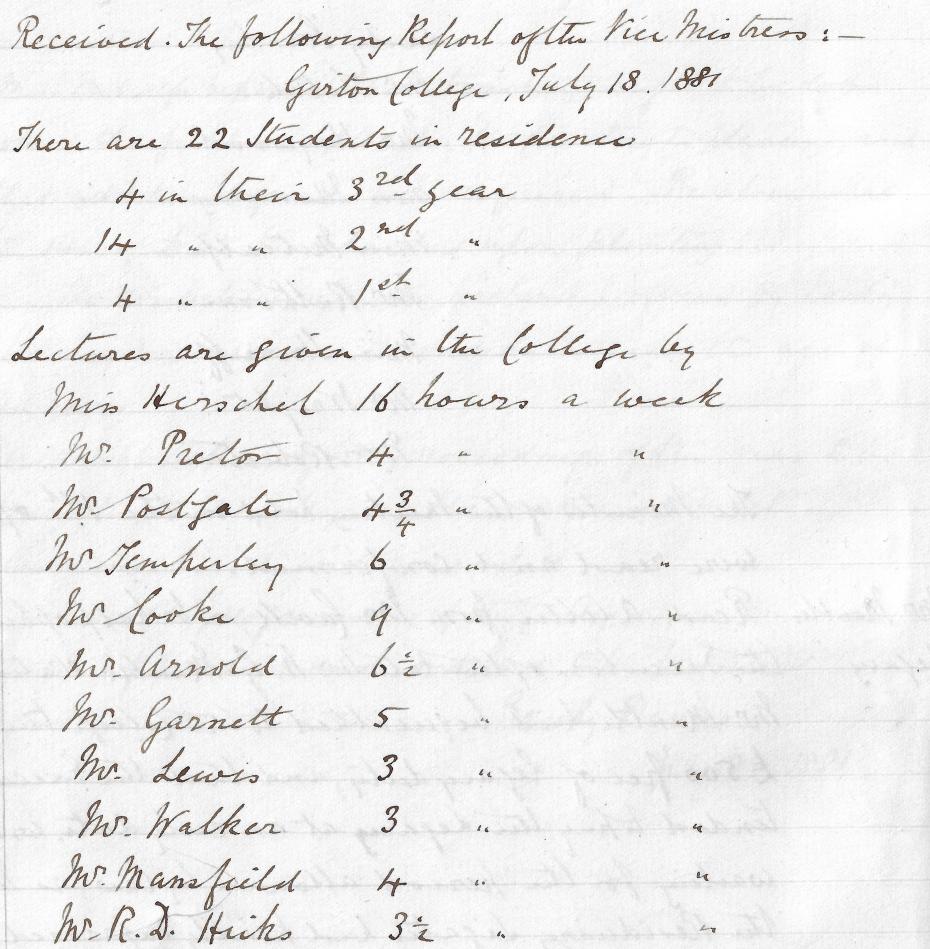 Received. The following Report of the Vice Mistress :—
Girton College, July 18. 1881
There are 22 Students in residence
4 in their 3rd year
14 " " 2nd "
4 " " 1st "
Lectures are given in the College by
Miss Herschel 16 hours a week
Mr. Pretor 4 " "
Mr. Postgate 4 3/4 " "
Mr Temperley 6 " "
Mr Cooke 9 " "
Mr. Arnold 6 1/2 " "
Mr. Garnett 5 " "
Mr. Lewis 3 " "
Mr. Walker 3 " "
Mr. Mansfield 4 " "
Mr. R. D. Hicks 3 1/2 " "